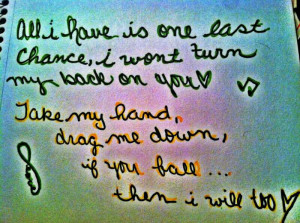 All i have is one last
chance, i wont turn
my back on you♡
Take my hand,
drag me down,
if you fall...
then i will too♡